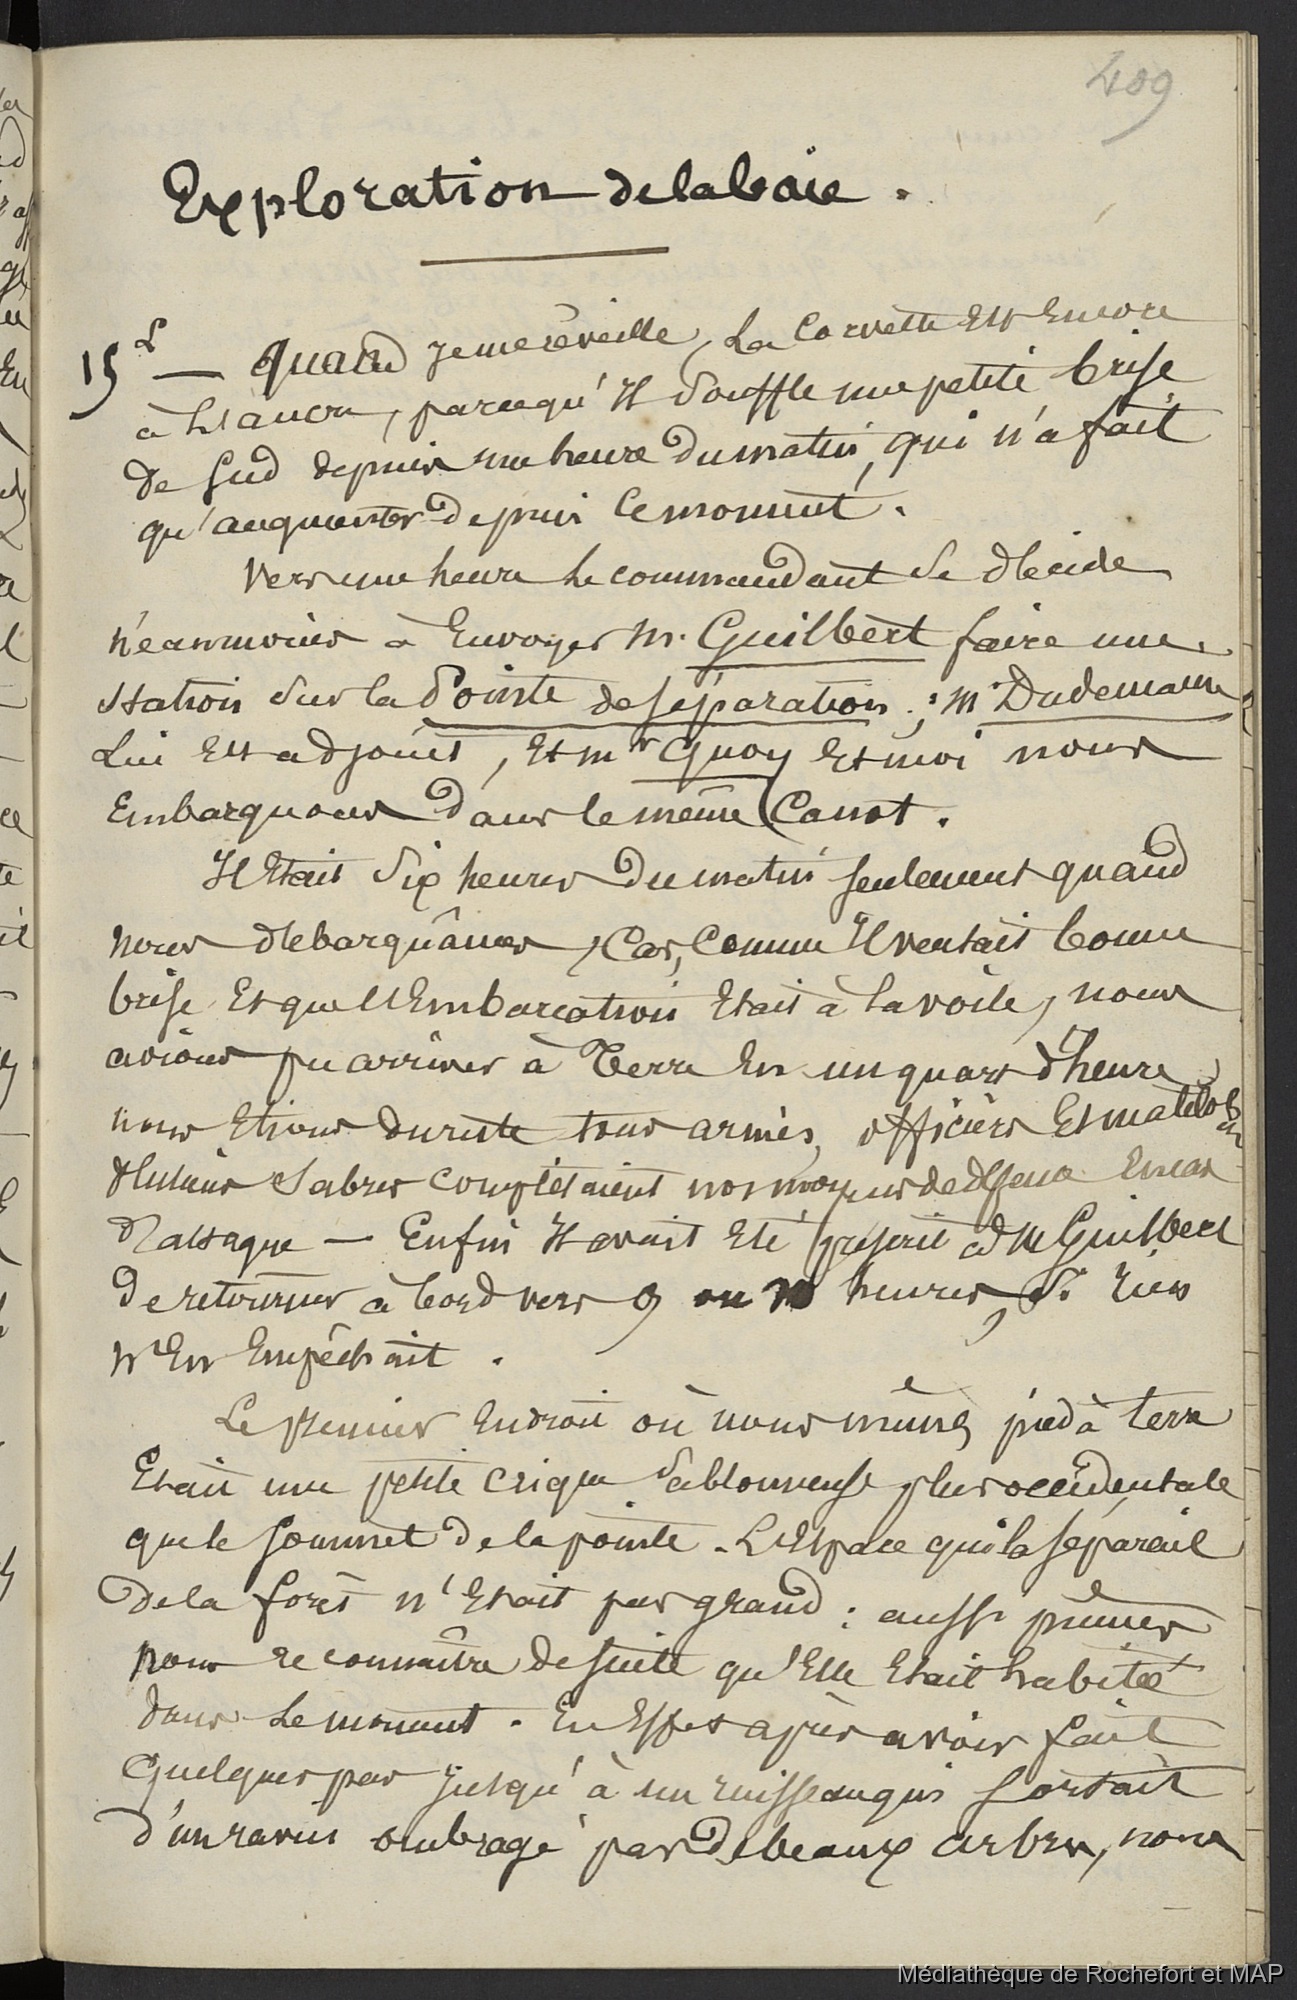 409
Exploration de la baie.
15 — Quand je me réveille, la Corvette est encore
à l'ancre, parcequ'il souffle une petite brise
de sud depuis une heure du matin, qui n'a fait
qu'augmenter depuis ce moment.
Vers une heure le commandant se décide
néanmoins à envoyer Mr. Guilbert faire une
station sur la Pointe de séparation; Mr Dudemaine
lui est adjoint, et mr Quoy et moi nous
embarquons dans le même Canot.
Il était six heures du matin seulement quand
nous débarquâmes, Car, comme il ventait bonne
brise et que l'embarcation était à la voile, nous
avions pu arriver à Terre en un quart d'heure
nous étions du reste tous armés, officiers et matelots
sabres complétaient nos moyens de défense en cas
d'attaque — Enfin il avait été prescrit à Mr Guilbert
de retourner à bord vers 9 ou 10 heures, si rien
n'en empêchait.
Le premier endroit où nous mîmes pied à terre
était une petite crique sablonneuse plus occidentale
que le sommet de la pointe. L'espace qui la séparait
de la forêt n'était pas grand : aussi pûmes
nous reconnaître de suite qu'elle était habitée
dans le moment. En effet après avoir fait
quelques pas jusqu'à un ruisseau qui sortait
d'un ravin ombragé par de beaux arbres, nous
Médiathèque de Rochefort et MAP